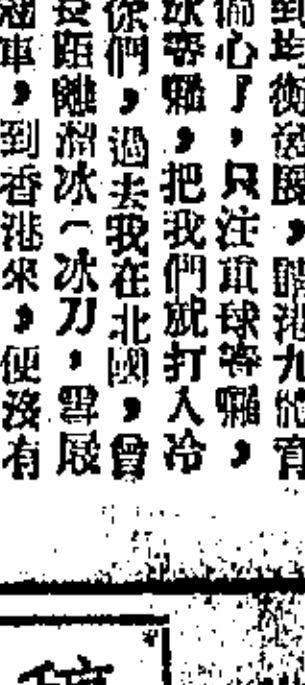 到均衡發展,睹港九體育
偏心了,只注重球等類,
球等類,把我們就打入冷
你們,過去我在北國,曾
長距離溜冰(冰刀,雪屐
冠軍,到香港來,便沒有